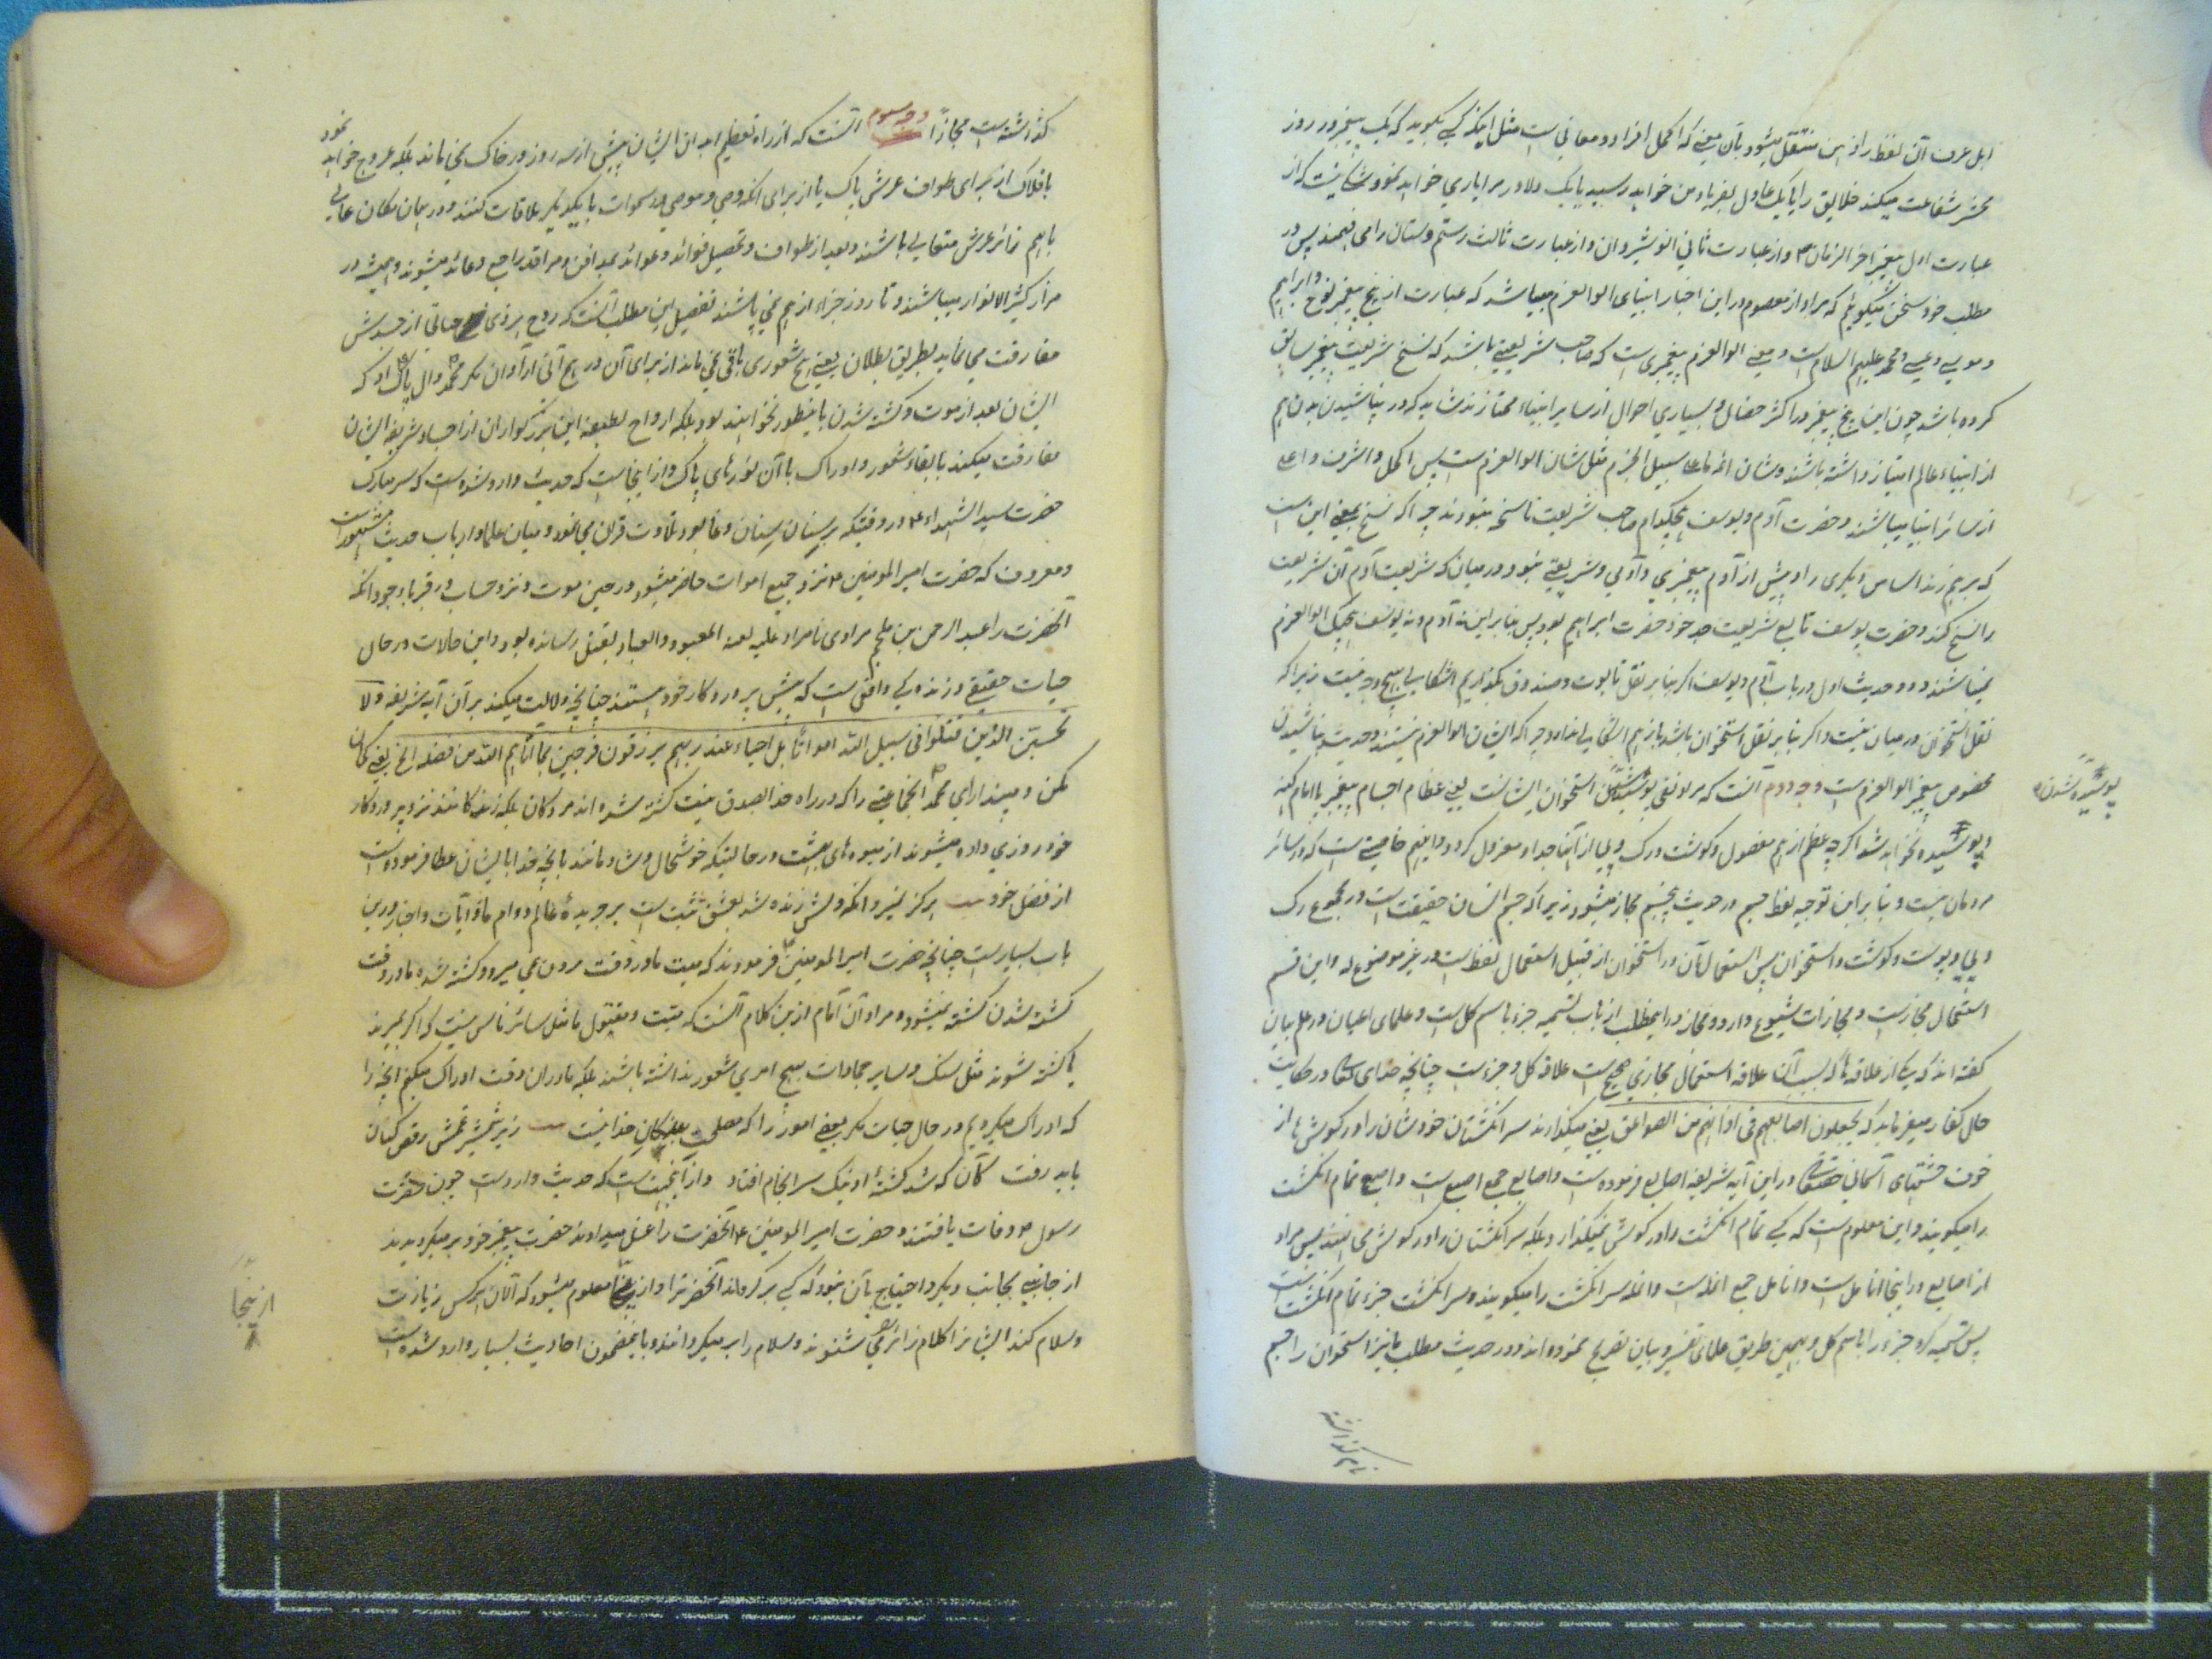 اهل عرف آن لفظ را ذهن منتقل میشود بآن معنی که اکمل افراد و معانی است مثل اینکه کسی بگوید که یک پیغمبر در روز
محشر شفاعت میکند خلایق را یا یک عادل بفریاد من خواهد رسید یا یک دلاور مرا یاری خواهد نمود شک نیست که از
عبارت اول پیغمبر آخر الزمان ص و از عبارت ثانی انوشیروان و از عبارت ثالث رستم دستان را می فهمند پس در
مطلب خود سخن میگوئیم که مراد از معصوم در این اخبار انبیای اولوالعزم میباشد که عبارت از پنج پیغمبر نوح و ابراهیم
و موسی و عیسی و محمد علیهم السلام است و معنی اولوالعزم پیغمبری است که صاحب شریعتی باشد که نسخ شریعت پیغمبر سابق
کرده باشد چون این پنج پیغمبر در اکثر خصال و بسیاری احوال از سایر انبیاء ممتازند شاید که در پاشیدن بدن هم
از انبیاء عالم امتیاز داشته باشند و شان ائمه ما علی سبیل الجزم مثل شان اولوالعزم است پس اکمل و اشرف و اعلی
از سائر انبیا میباشند و حضرت آدم و یوسف هیچکدام صاحب شریعت ناسخه نبودند چرا که نسخ بمعنی این است
که بر هم زند اساس دیگری را و پیش از آدم پیغمبری و آدمی و شریعتی نبود در میان که شریعت آدم آن شریعت
را نسخ کند و حضرت یوسف تابع شریعت جد خود حضرت ابراهیم بود پس بنابراین نه آدم و نه یوسف هیچیک اولوالعزم
نمیباشند و دو حدیث اول در باب آدم و یوسف اگر بنا بر نقل تابوت و صندوق بگذاریم اشکالی بهیچ وجه نیست زیرا که
نقل استخوان در میان نیست و اگر بنا بر نقل استخوان باشد باز هم اشکالی ندارد چرا که ایشان اولوالعزم نیستند و حدیث نپاشیدن
مخصوص پیغمبر اولوالعزم است وجه دوم آنست که مراد نفی پوسیدن استخوان ایشانست یعنی عظام اجسام پیغمبر یا امام کهنه
پوسیده شدن
و پوسیده نخواهد شد اگر چه عظم از هم مفصول و گوشت و رگ و پی از آنها جدا و معزول گردد و این هم خاصیتی است که در سائر
مردمان نیست و بنابراین توجیه لفظ جسم در حدیث پنجم مجاز میشود زیرا که جسم انسان حقیقت است در مجموع رگ
و پی و پوست و گوشت و استخوان پس استعمال آن در استخوان از قبیل استعمال لفظ است در غیر موضوع له و این قسم
استعمال مجاز است و مجازات شیوع دارد و مجاز در اینمطلب از باب تسمیه جزء باسم کل است و علمای اعیان در علم بیان
گفته اند که یکی از علاقه ها که بسبب آن علاقه استعمال مجازی صحیح است علاقه کل و جزء است چنانچه خدای تعالی در حکایت
حال کفار میفرماید که یجعلون اصابعهم فی اذانهم من الصواعق یعنی میگذارند سر انگشتان خودشان را در گوش ها از
خوف آسمانی در این آیه شریفه اصابع فرموده است و اصابع جمع اصبع است و اصبع تمام انگشت
را میگویند و این معلوم است که کسی تمام انگشت را در گوش نمیگذارد بلکه سر انگشتان را در گوش می نهند پس مراد
از اصابع در اینجا انامل است و انامل جمع انمله است و انمله سر انگشت را میگویند و سر انگشت جزء تمام انگشت است
پس تسمیه کرده جزء را باسم کل و بهمین طریق علمای تفسیر و بیان تصریح نموده اند و در حدیث مطلب ما نیز استخوان را جسم
نام گذاشته
گذاشته است مجازاً وجه سوم آنست که از راه تعظیم ابدان ایشان پیش از سه روز در خاک نمی ماند بلکه عروج خواهد نمود
بافلاک از برای طواف عرش پاک یا از برای آنکه وصی و موصی در سموات با یکدیگر ملاقات کنند و در میان مکان عالی
با هم زائر عرش متعالی باشند و بعد از طواف و تحصیل فوائد و عوائد بمدافن و مراقد راجع و عائد میشوند و همیشه در
مزار کثیر الانوار میباشند و تا روز جزاء از هم نمی پاشند تفصیل این مطلب آنست که روح هر ذی حیاتی از جسدش
مفارقت می نماید بطریق بطلان یعنی هیچ شعوری باقی نمی ماند از برای آن در هیچ آنی از آوان مگر محمد ص و آل پاک او که
ایشان بعد از موت و کشته شدن باینطور نخواهند بود بلکه ارواح لطیفه این بزرگواران از اجساد شریفه ایشان
مفارقت میکند با بقاء شعور و ادراک با آن نورهای پاک و از اینجاست که حدیث وارد شده است که سر مبارک
حضرت سید الشهداء ع در وقتیکه بر سنان سنان دغا بود تلاوت قرآن می نمود و میان علما و ارباب حدیث مشهور است
و معروف که حضرت امیر المومنین ع نزد جمیع اموات حاضر میشود در حین موت و نزد حساب در قبر با وجود آنکه
آنحضرت را عبد الرحمن بن ملجم مرادی نامراد علیه لعنه المعبود و العباد بقتل رسانده بود و این حالات در حال
حیات حقیقی و زندگی واقعی است که پیش پروردگار خود هستند چنانچه دلالت میکند بر آن آیه شریفه و لا
تحسبن الذین قتلوا فی سبیل الله امواتا بل احیاء عند ربهم یرزقون فرحین بما آتاهم الله من فضله الخ یعنی گمان
مکن و مپندار ای محمد ص آنجماعتی را که در راه خدا بصدق نیت کشته شده اند مردگان بلکه زندگانند نزد پروردگار
خود روزی داده میشوند از میوه های بهشت در حالتیکه خوشحال و شادمانند بآنچه خدا بایشان عطا فرموده است
از فضل خود هرگز نمیرد آنکه دلش زنده شد بعشق ثبت است بر جریده عالم دوام ما و آیات و اخبار در این
باب بسیار است چنانچه حضرت امیر المومنین ع فرمودند که میت ما در وقت مردن نمی میرد و کشته شده ما در وقت
کشته شدن کشته نمیشود و مراد آن امام از این کلام آنست که میت و مقتول ما مثل سائر ناس نیست که اگر بمیرند
یا کشته شوند مثل سنگ و سایر جمادات بهیچ امری شعور نداشته باشند بلکه ما در آن وقت ادراک میکنیم آنچه را
که ادراک میکردیم در حال حیات مگر بعضی امور را که مصلحت بندگان خدا نیست زیر شمشیر غمش رقص کنان
باید رفت کان که شد کشته او نیک سرانجام افتاد و از آنجهت است که حدیث وارد است چون حضرت
رسول ص وفات یافتند و حضرت امیر المومنین ع آنحضرت را غسل میدادند حضرت پیغمبر خود بر میگردیدند
از جانبی بجانب دیگر و احتیاج بآن نبود که کسی برگرداند آنحضرت را و از اینجا معلوم میشود که الان هر کس زیارت
از اینجا
و سلام کند ایشانرا کلام زائر می شنوند و سلام را بر میگردانند و باینمضمون احادیث بسیار وارد شده است